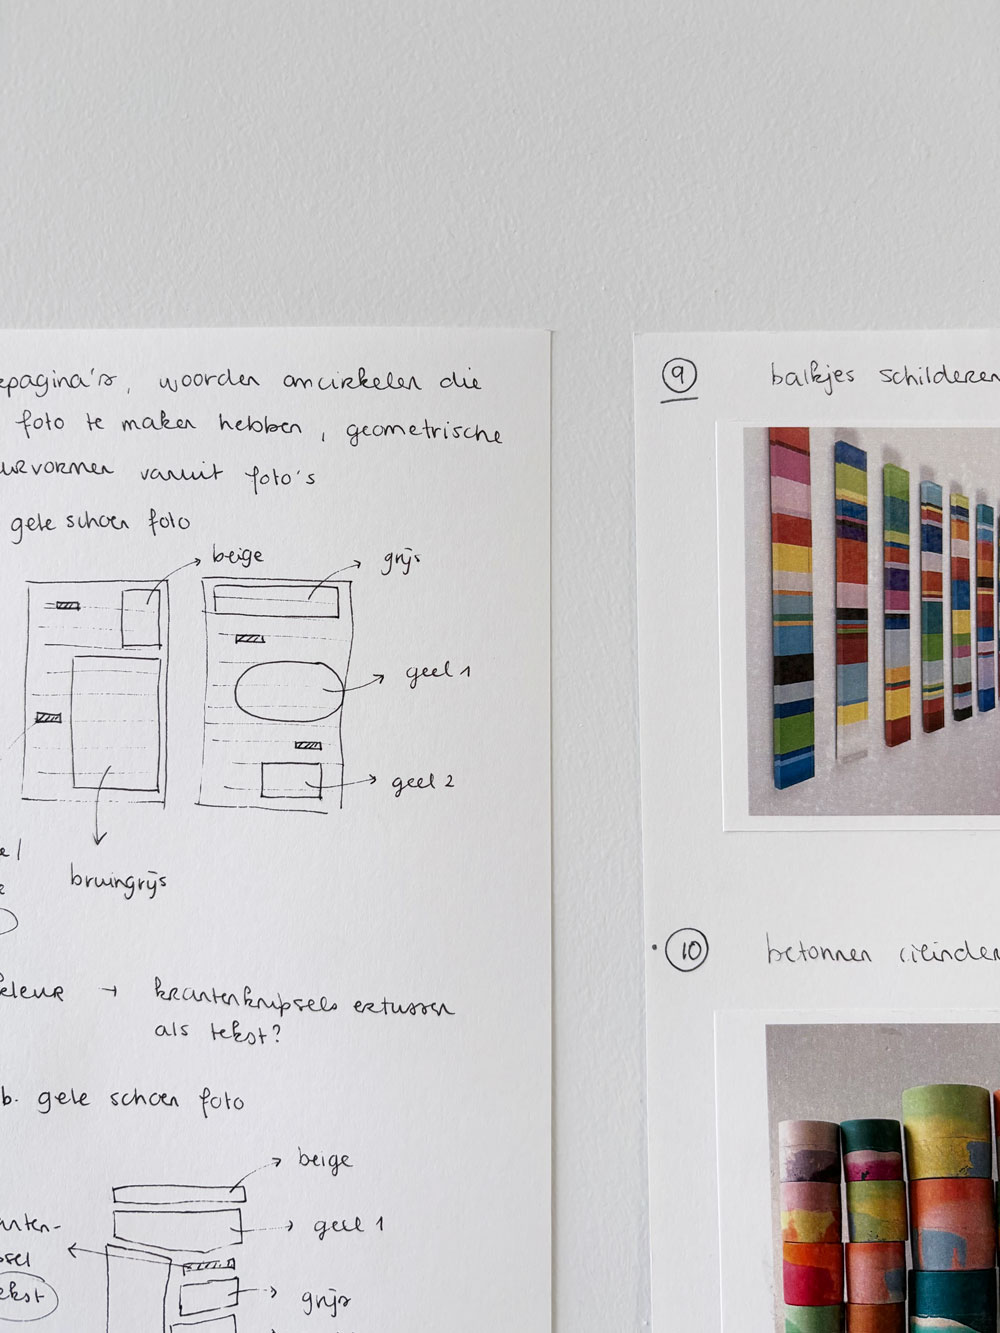 epagina's, woorden omcirkelen die
foto te maken hebben, geometrische
urvormen vanuit foto's
gele schoen foto
beige
grijs
geel 1
geel 2
bruingrijs
kleur → krantenknipsels ertussen
als tekst?
b. gele schoen foto
beige
geel 1
anten-
psel
tekst
grijs
9
balkjes schilderen
10
betonnen cilinder